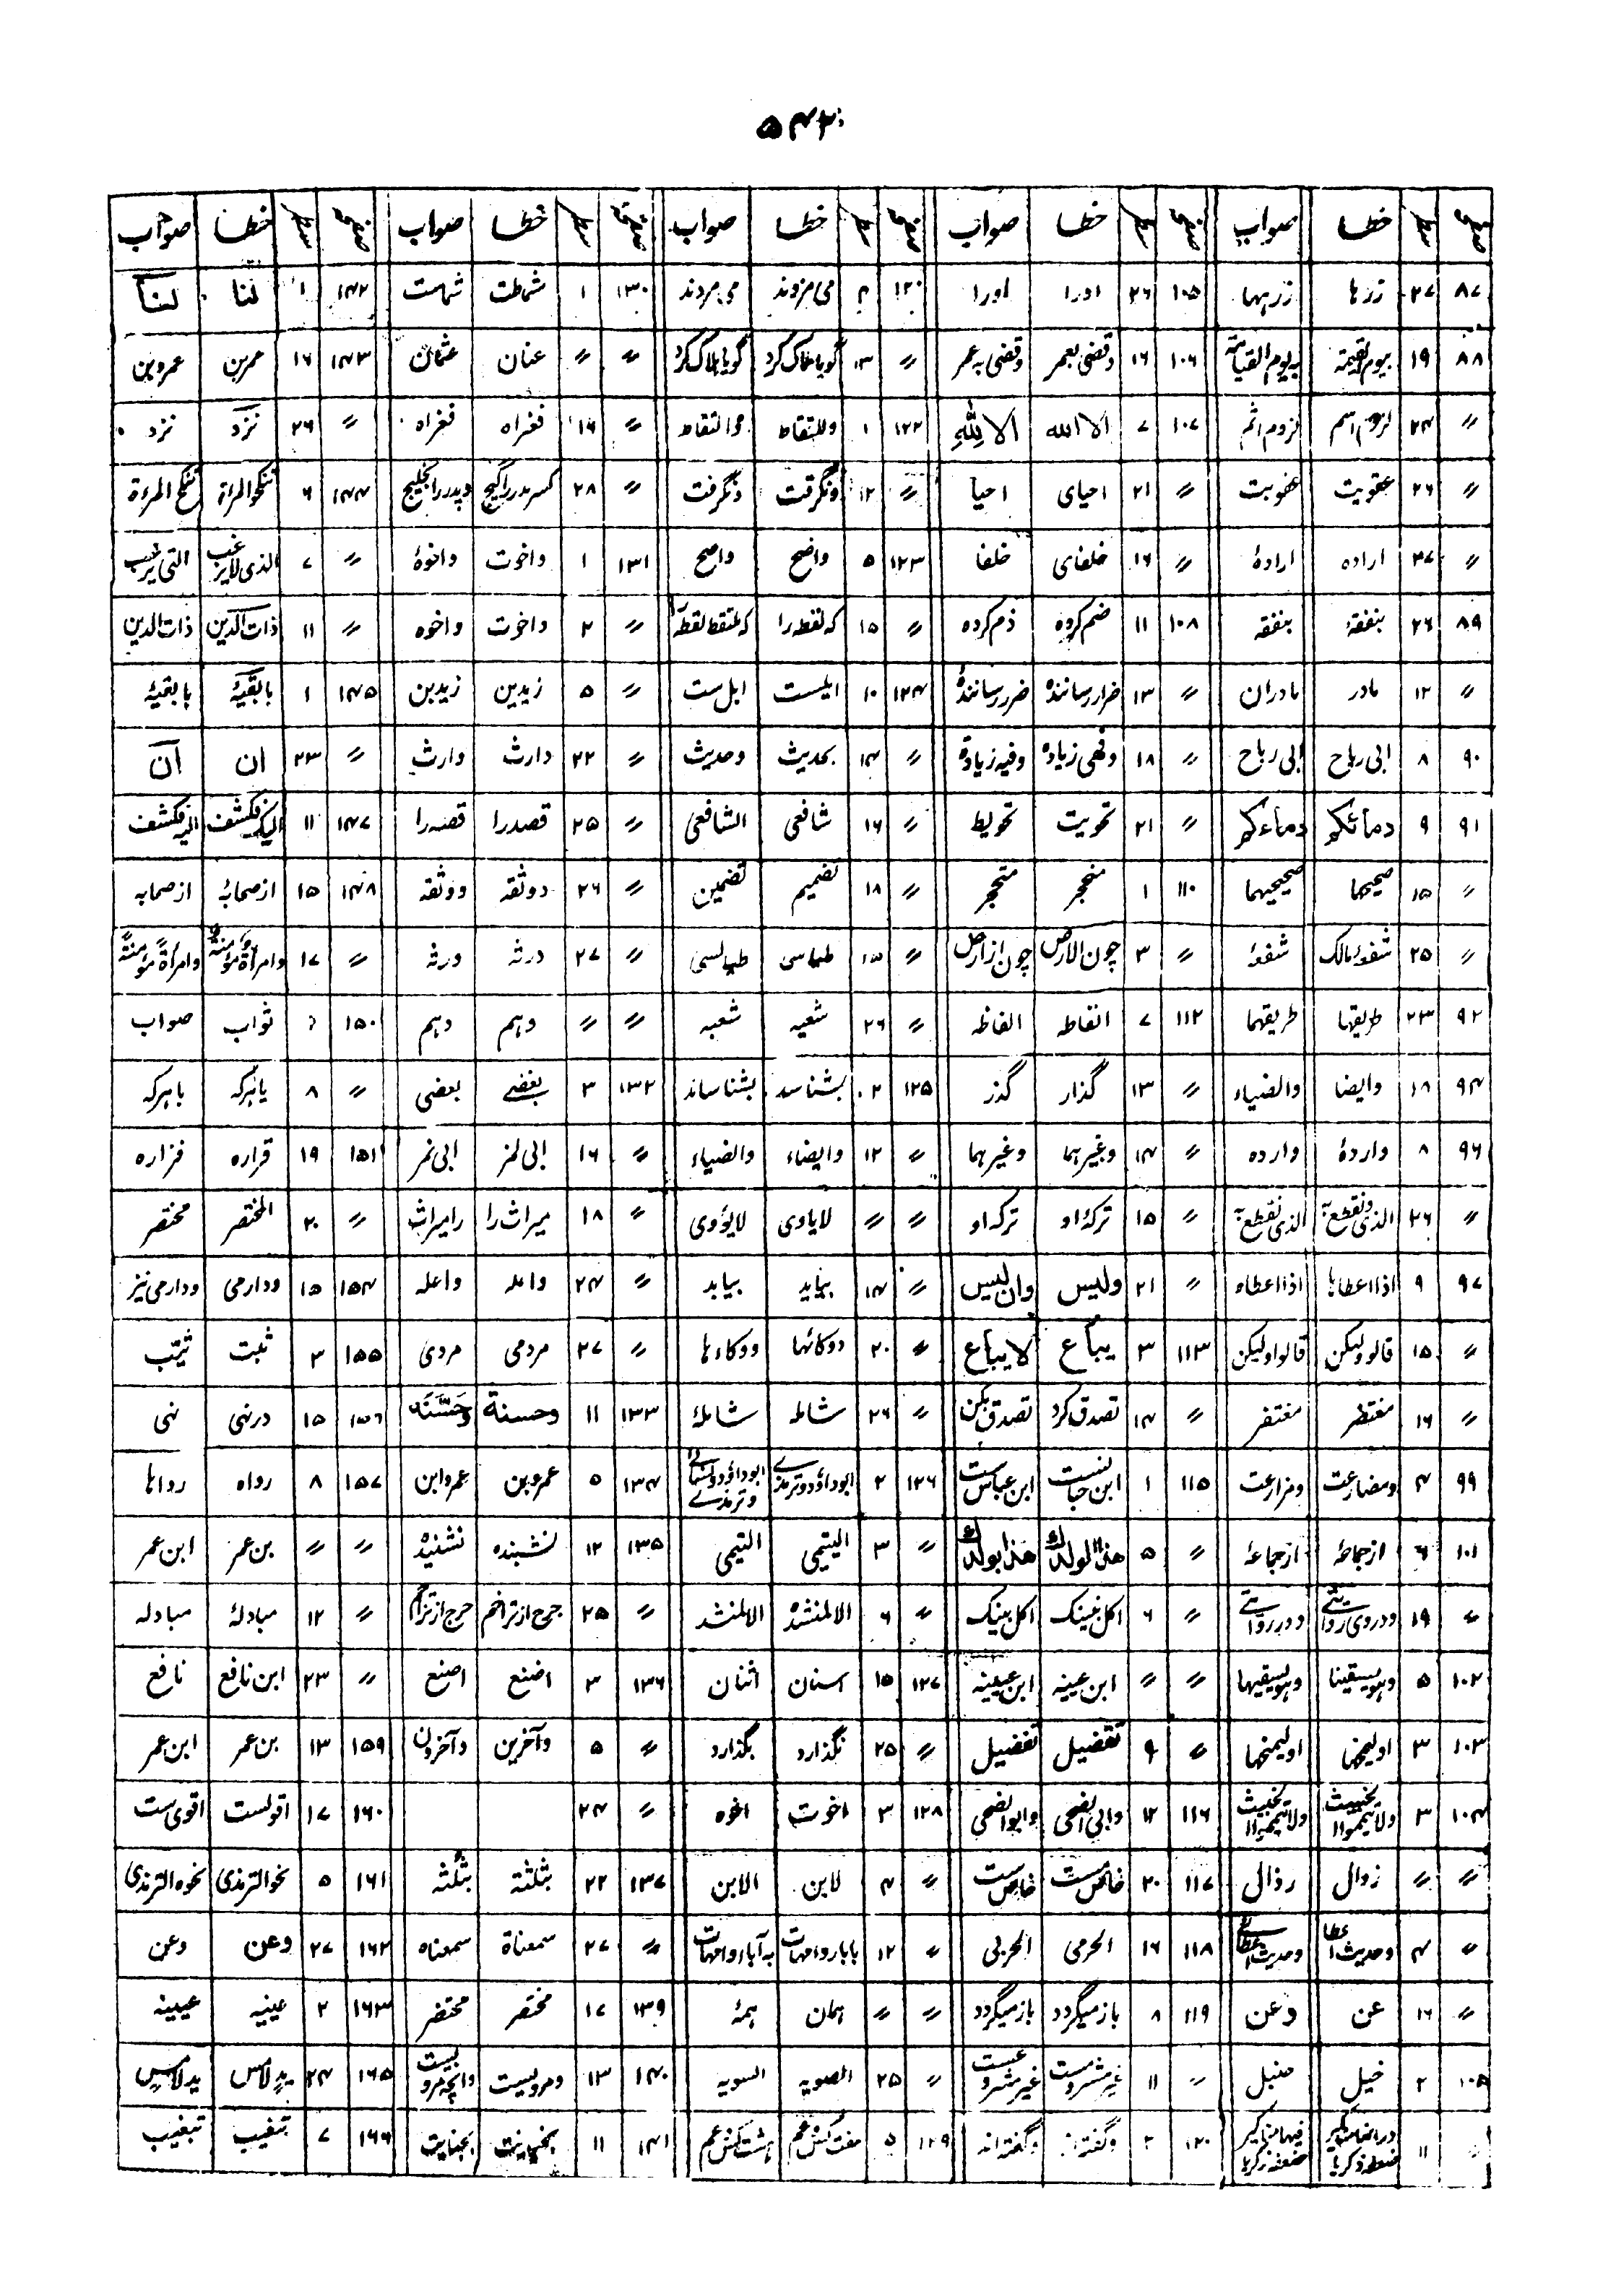 ۵۴۲
صفحہ سطر خطا صواب صفحہ سطر خطا صواب صفحہ سطر خطا صواب صفحہ سطر خطا صواب صفحہ سطر خطا صواب
۸۷ ۲۷ زرہا زریہا ۱۰۵ ۲۶ اورا اورا ۱۲۰ ۲ می مزوند می مردند ۱۳۰ ۱ شمطت شمت ۱۴۲ ۱ لنا لنا
۸۸ ۱۹ بیوم القیمۃ بہ یوم القیامۃ ۱۰۶ ۱۶ وقضی بعمر وقضی بہ عمر 〃 ۱۳ گویا خاک کرد گویا ہلاک کرد 〃 〃 عنان عثمان ۱۴۳ ۱۶ عمربن عمروبن
〃 ۲۴ لزوم اسم لزوم اثم ۱۰۷ ۷ الا اللہ الا للہ ۱۲۲ ۱ وللتقاط والتقاط 〃 ۱۶ فغراہ فغراہ 〃 ۲۶ نزد نزد
〃 ۲۶ عقویت عقوبت 〃 ۲۱ احیای احیا 〃 ۱۲ ونگرقت ونگرفت 〃 ۲۸ ۱۴۴ ۶ تنکحوالمراۃ تنکح المرءۃ
〃 ۲۷ ارادہ ارادۂ 〃 ۱۶ خلفای خلفا ۱۲۳ ۵ واضح واضح ۱۳۱ ۱ واخوت واخوۃ 〃 ۷ الذی لایرغب التی یرغب
۸۹ ۲۶ بنفقۂ بنفقہ ۱۰۸ ۱۱ ضم کردہ ذم کردہ 〃 ۱۵ کہ لقطہ را کہ ملتقط لقطہ را 〃 ۲ واخوت واخوہ 〃 ۱۱ ذات الدین ذات الدین
〃 ۱۲ مادر مادران 〃 ۱۳ ضرار رسانندہ ضرر رسانندۂ ۱۲۴ ۱۰ ایلست ابل ست 〃 ۵ زیدین زیدبن ۱۴۵ ۱ بابقیۂ بابقیۂ
۹۰ ۸ ابی رباح ابی رباح 〃 ۱۸ وفھی زیادہ وفیہ زیادۃ 〃 ۱۴ بحدیث وحدیث 〃 ۲۲ دارث وارث 〃 ۲۳ ان آن
۹۱ ۹ دمائکم دماءکم 〃 ۲۱ تحویت تحویط 〃 ۱۶ شافعی الشافعی 〃 ۲۵ قصدرا قصہ را ۱۴۷ ۱۱ الیک فکشف الیہ فکشف
〃 ۱۵ صحیحہا صحیحیہما ۱۱۰ ۱ منحجر متحجر 〃 ۱۸ تضمیم تضمین 〃 ۲۶ دوثقہ ووثقہ ۱۴۸ ۱۵ ازصحابۂ ازصحابہ
〃 ۲۵ شفعۂ مالک شفعۂ 〃 ۳ چون الارض چون ازارض 〃 ۱۵ طیاسی طیالسی 〃 ۲۷ درثہ ورثہ 〃 ۱۷ وامرأۃ مؤمنۃ وامرأۃ مؤمنۃ
۹۲ ۲۳ طریقہا طریقہما ۱۱۲ ۷ الفاطہ الفاظہ 〃 ۲۶ شعیہ شعبہ 〃 〃 وہم دہم ۱۵۰ ثواب صواب
۹۴ ۱۸ وایضا والضیاء 〃 ۱۳ گذار گذر ۱۲۵ ۲ بشناسد بشناساند ۱۳۲ ۳ بغضے بعضی 〃 ۸ یاہرکہ باہرکہ
۹۶ ۸ واردۂ واردہ 〃 ۱۴ وغیرہما وغیرہما 〃 ۱۲ وایضاء والضیاء 〃 ۱۶ ابی لمز ابی نمر ۱۵۱ ۱۹ قرارہ فزارہ
〃 ۲۶ الذی ونقطع بہ الذی نقطع بہ 〃 ۱۵ ترکۂ او ترکہ او 〃 〃 لایاوی لایؤوی 〃 ۱۸ میراث را رامیراث 〃 ۲۰ المختصر مختصر
۹۷ ۹ اذا اعطاہا اذا اعطاہ 〃 ۲۱ ولیس وان لیس 〃 ۱۴ بیاید بیابد 〃 ۲۴ واعلہ واعلہ ۱۵۴ ۱۵ ودارمی ودارمی نیز
〃 ۱۵ قالوولیکن قالواولیکن ۱۱۳ ۳ یباع لایباع 〃 ۲۰ دوکائہا ووکاءہا 〃 ۲۷ مردمی مردی ۱۵۵ ۲ ثبت ثیّب
〃 ۱۶ مفتطر مفتقر 〃 ۱۴ تصدق کرد تصدق بکن 〃 ۲۶ شاملہ شاملۂ ۱۳۳ ۱۱ وحسنۃ وحَسَّنَہ ۱۵۶ ۱۵ درنہی نہی
۹۹ ۴ ومضارعت ومزارعت ۱۱۵ ۱ ابن عباست ابن عباس ست ۱۲۶ ۲ ابوداؤد وترمذے ابوداؤد ونسائے وترمذے ۱۳۴ ۵ عمروبن عمروابن ۱۵۷ ۸ رواہ رواہا
۱۰۱ ۶ ازجماعۂ ازجماعۂ 〃 ۵ ھذا لولدک ھذا بولدک 〃 ۳ الیتمی التیمی ۱۳۵ ۱۲ نشبندہ نشنیدہ 〃 〃 بن عمر ابن عمر
〃 ۱۹ ودروی روایتے ودرروایتے 〃 ۶ اکل نبینک اکل بینک 〃 ۶ الالمنشدہ الالمنشد 〃 ۲۵ 〃 ۱۲ مبادلۂ مبادلہ
۱۰۲ ۵ وہویسقینا وہویسقیہا 〃 〃 ابن عیینہ ابن عیینہ ۱۲۷ ۱۵ اسنان اثنان ۱۳۶ ۳ اضنع اصنع 〃 ۲۳ ابن نافع نافع
۱۰۳ ۳ اولیمنحہا اولیمنحہا 〃 ۹ تقضیل تفضیل 〃 ۲۵ نگذارد بگذارد 〃 ۵ وآخرین وآخرون ۱۵۹ ۱۳ بن عمر ابن عمر
۱۰۴ ۳ ولاتیمموا الخبیث ولاتیمموا الخبیث ۱۱۶ ۱۲ وابی الضحی وابوالضحی ۱۲۸ ۳ اخوت اخوہ 〃 ۲۴ ۱۶۰ ۱۷ اقولست اقوی ست
〃 〃 زوال رذالی ۱۱۷ ۲۰ خالص ست خاص ست 〃 ۴ لابن الابن ۱۳۷ ۲۲ بثلثۃ بثلثہ ۱۶۱ ۵ نحوالترمذی نحوہ الترمذی
〃 ۴ وحدیث عطا وحدیث عطائے ۱۱۸ ۱۶ الحرمی الحربی 〃 ۱۲ باباروامہات بہ آباء وامہات 〃 ۲۷ سمعناۃ سمعناہ ۱۶۲ ۲۷ وعن وعن
〃 ۱۶ عن وعن ۱۱۹ ۸ بازمیگردد بازمیگردد 〃 〃 ہمان ہمۂ ۱۳۹ ۱۷ مختصر محتضر ۱۶۳ ۲ عینیہ عیینہ
۱۰۵ ۲ خیل حنبل 〃 ۱۱ غیرمشروست غیرمشروعست 〃 ۲۵ الصویہ السویہ ۱۴۰ ۱۳ ومرولیست ۱۶۵ ۲۴ یدلامس یدلامس
〃 ۱۱ ۱۲۰ ۲ وگفتہ وگفتہ اند ۱۲۹ ۵ ہفت کس وعم ہشت کس وعم ۱۴۱ ۱۱ بخیانت بجنایت ۱۶۶ ۷ تبغیب تبغیب